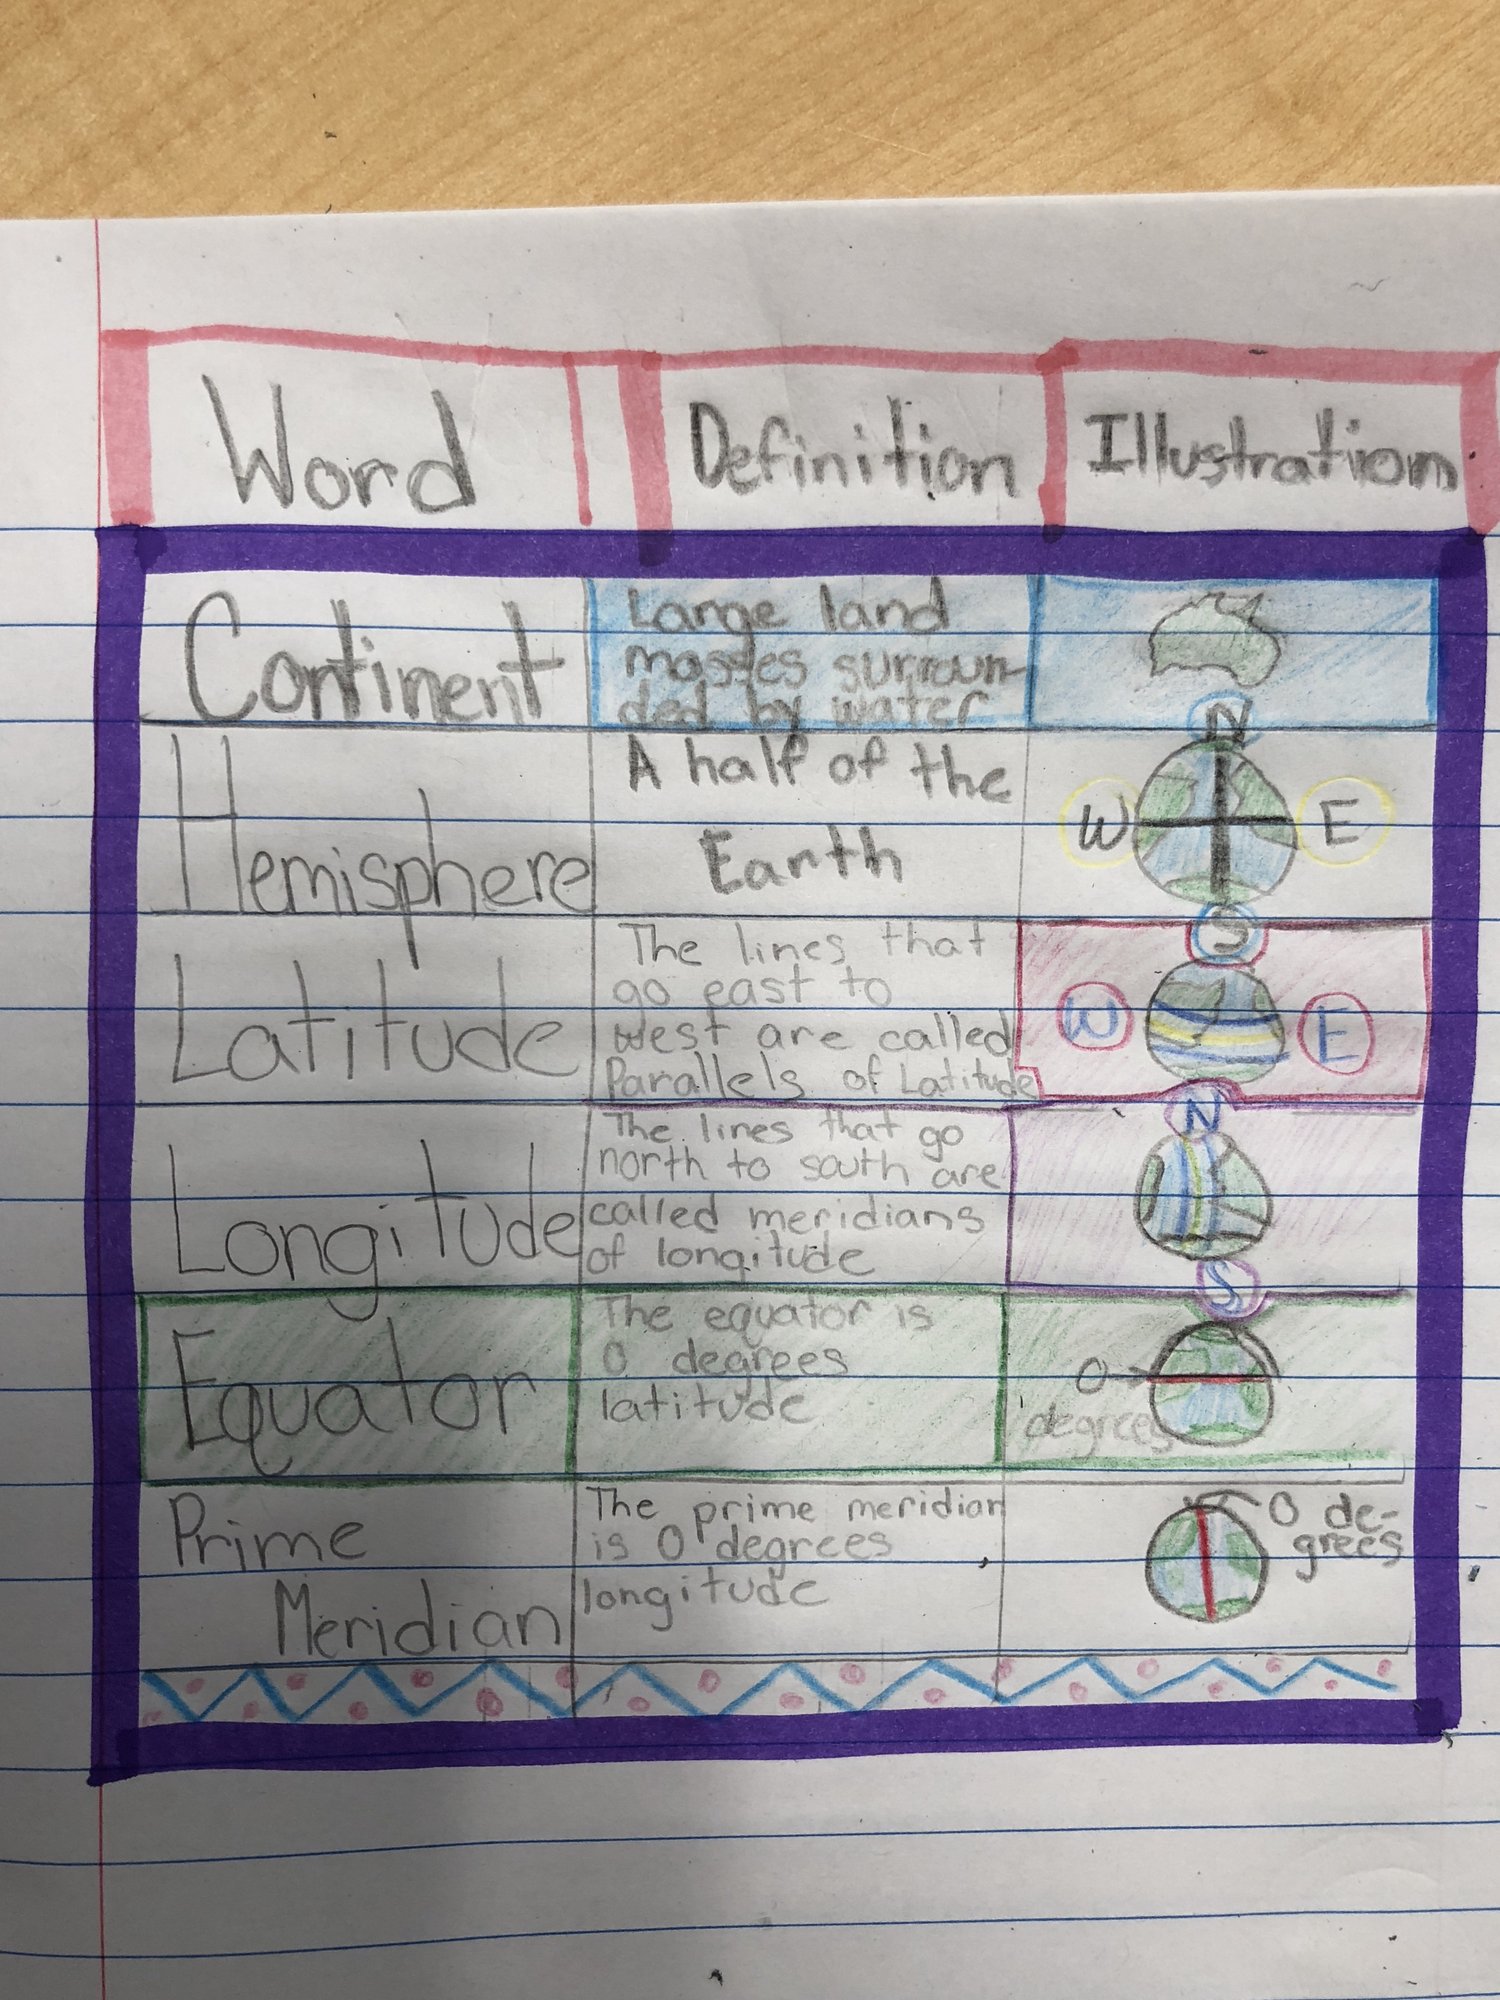 Word Definition Illustration
Continent
Large land
masses surroun-
ded by water
Hemisphere
A half of the
Earth
N
W E
S
Latitude
The lines that
go east to
west are called
Parallels of Latitude
W E
Longitude
The lines that go
north to south are
called meridians
of longitude
N
S
Equator
The equator is
0 degrees
latitude
0
degrees
Prime
Meridian
The prime meridian
is 0 degrees
longitude
0 de-
grees